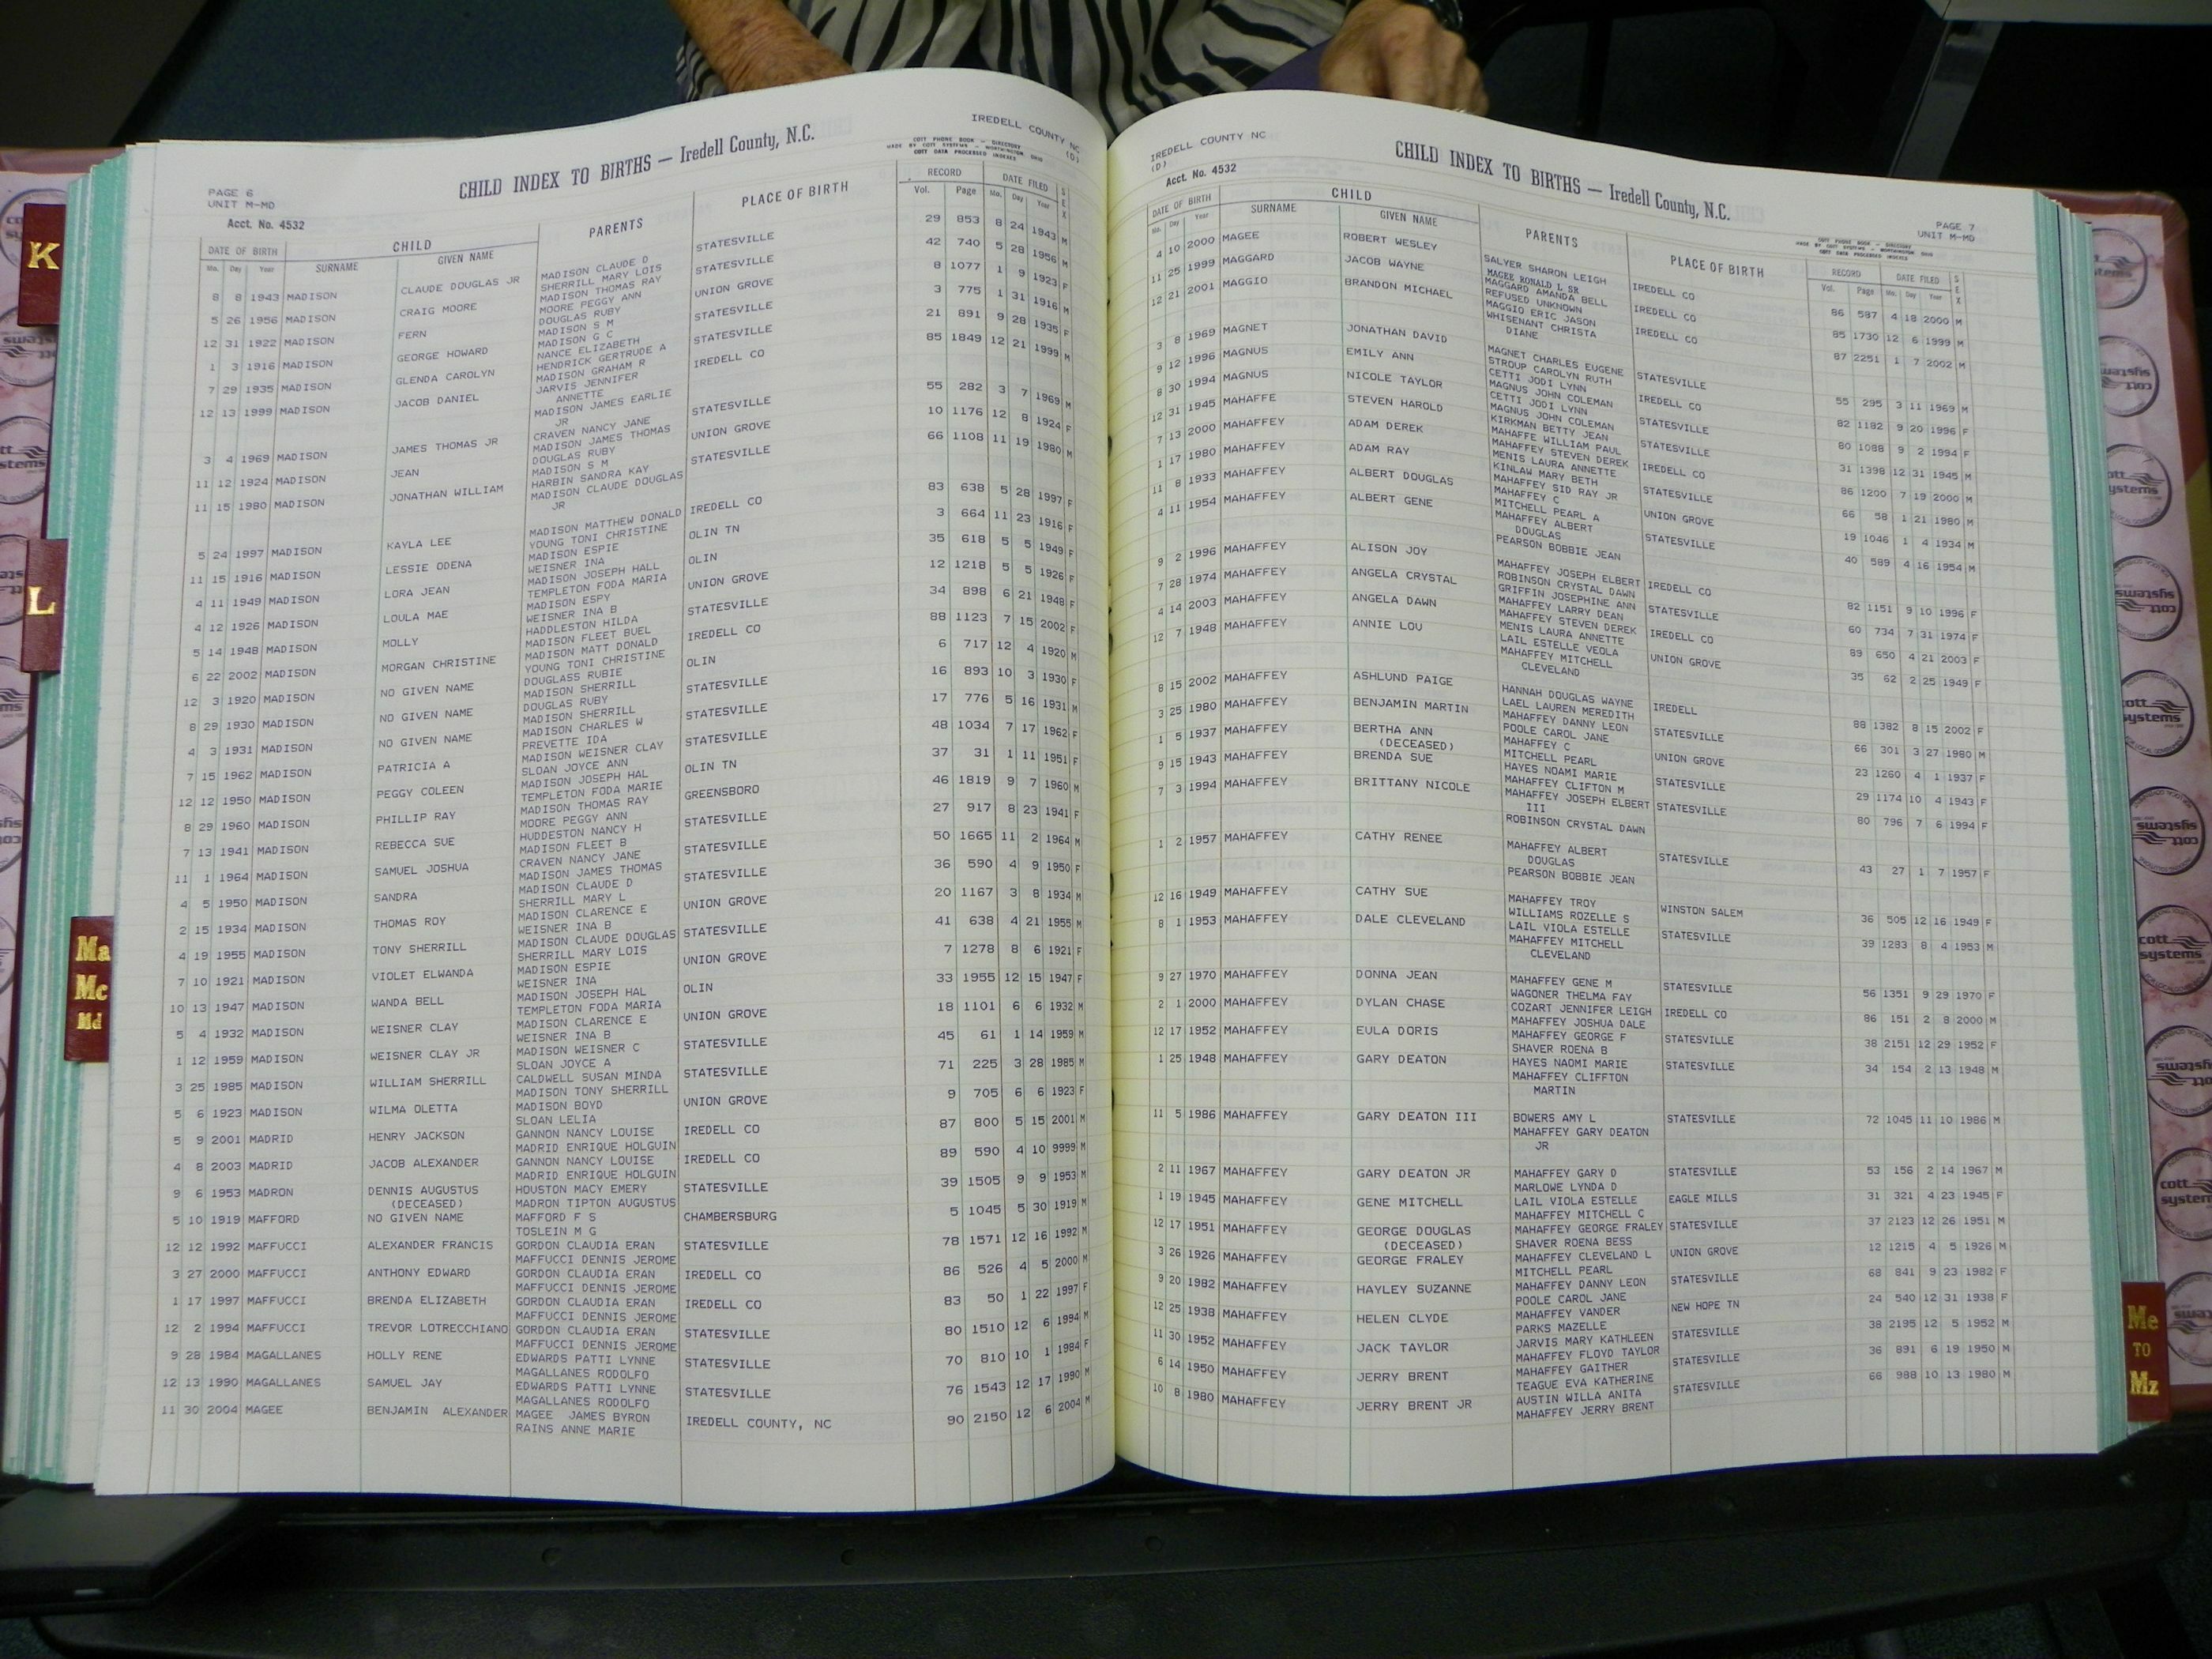 PAGE 6
UNIT M-MD
CHILD INDEX TO BIRTHS — Iredell County, N.C.
IREDELL COUNTY NC
(D)
COTT PHONE BOOK — DIRECTORY
MADE BY COTT SYSTEMS — WORTHINGTON, OHIO
COTT DATA PROCESSED INDEXES
Acct. No. 4532
DATE OF BIRTH CHILD PARENTS PLACE OF BIRTH RECORD DATE FILED SEX
Mo. Day Year SURNAME GIVEN NAME Vol. Page Mo. Day Year
8 8 1943 MADISON CLAUDE DOUGLAS JR MADISON CLAUDE D STATESVILLE 29 853 8 24 1943 M
SHERRILL MARY LOIS
5 26 1956 MADISON CRAIG MOORE MADISON THOMAS RAY STATESVILLE 42 740 5 28 1956 M
MOORE PEGGY ANN
12 31 1922 MADISON FERN DOUGLAS RUBY UNION GROVE 8 1077 1 9 1923 F
MADISON S M
1 3 1916 MADISON GEORGE HOWARD MADISON G C STATESVILLE 3 775 1 31 1916 M
NANCE ELIZABETH
7 29 1935 MADISON GLENDA CAROLYN HENDRICK GERTRUDE A STATESVILLE 21 891 9 28 1935 F
MADISON GRAHAM R
12 13 1999 MADISON JACOB DANIEL JARVIS JENNIFER IREDELL CO 85 1849 12 21 1999 M
ANNETTE
MADISON JAMES EARLIE
JR
3 4 1969 MADISON JAMES THOMAS JR CRAVEN NANCY JANE STATESVILLE 55 282 3 7 1969 M
MADISON JAMES THOMAS
11 12 1924 MADISON JEAN DOUGLAS RUBY UNION GROVE 10 1176 12 8 1924 F
MADISON S M
11 15 1980 MADISON JONATHAN WILLIAM HARBIN SANDRA KAY STATESVILLE 66 1108 11 19 1980 M
MADISON CLAUDE DOUGLAS
JR
5 24 1997 MADISON KAYLA LEE MADISON MATTHEW DONALD IREDELL CO 83 638 5 28 1997 F
YOUNG TONI CHRISTINE
11 15 1916 MADISON LESSIE ODENA MADISON ESPIE OLIN TN 3 664 11 23 1916 F
WEISNER INA
4 11 1949 MADISON LORA JEAN MADISON JOSEPH HALL OLIN 35 618 5 5 1949 F
TEMPLETON FODA MARIA
4 12 1926 MADISON LOULA MAE MADISON ESPY UNION GROVE 12 1218 5 5 1926 F
WEISNER INA B
5 14 1948 MADISON MOLLY HADDLESTON HILDA STATESVILLE 34 898 6 21 1948 F
MADISON FLEET BUEL
6 22 2002 MADISON MORGAN CHRISTINE MADISON MATT DONALD IREDELL CO 88 1123 7 15 2002 F
YOUNG TONI CHRISTINE
12 3 1920 MADISON NO GIVEN NAME DOUGLASS RUBIE OLIN 6 717 12 4 1920 M
MADISON SHERRILL
8 29 1930 MADISON NO GIVEN NAME DOUGLAS RUBY STATESVILLE 16 893 10 3 1930 F
MADISON SHERRILL
4 3 1931 MADISON NO GIVEN NAME MADISON CHARLES W STATESVILLE 17 776 5 16 1931 M
PREVETTE IDA
7 15 1962 MADISON PATRICIA A MADISON WEISNER CLAY STATESVILLE 48 1034 7 17 1962 F
SLOAN JOYCE ANN
12 12 1950 MADISON PEGGY COLEEN MADISON JOSEPH HAL OLIN TN 37 31 1 11 1951 F
TEMPLETON FODA MARIE
8 29 1960 MADISON PHILLIP RAY MADISON THOMAS RAY GREENSBORO 46 1819 9 7 1960 M
MOORE PEGGY ANN
7 13 1941 MADISON REBECCA SUE HUDDESTON NANCY H STATESVILLE 27 917 8 23 1941 F
MADISON FLEET B
11 1 1964 MADISON SAMUEL JOSHUA CRAVEN NANCY JANE STATESVILLE 50 1665 11 2 1964 M
MADISON JAMES THOMAS
4 5 1950 MADISON SANDRA MADISON CLAUDE D STATESVILLE 36 590 4 9 1950 F
SHERRILL MARY L
2 15 1934 MADISON THOMAS ROY MADISON CLARENCE E UNION GROVE 20 1167 3 8 1934 M
WEISNER INA B
4 19 1955 MADISON TONY SHERRILL MADISON CLAUDE DOUGLAS STATESVILLE 41 638 4 21 1955 M
SHERRILL MARY LOIS
7 10 1921 MADISON VIOLET ELWANDA MADISON ESPIE UNION GROVE 7 1278 8 6 1921 F
WEISNER INA
10 13 1947 MADISON WANDA BELL MADISON JOSEPH HAL OLIN 33 1955 12 15 1947 F
TEMPLETON FODA MARIA
5 4 1932 MADISON WEISNER CLAY MADISON CLARENCE E UNION GROVE 18 1101 6 6 1932 M
WEISNER INA B
1 12 1959 MADISON WEISNER CLAY JR MADISON WEISNER C STATESVILLE 45 61 1 14 1959 M
SLOAN JOYCE A
3 25 1985 MADISON WILLIAM SHERRILL CALDWELL SUSAN MINDA STATESVILLE 71 225 3 28 1985 M
MADISON TONY SHERRILL
5 6 1923 MADISON WILMA OLETTA MADISON BOYD UNION GROVE 9 705 6 6 1923 F
SLOAN LELIA
5 9 2001 MADRID HENRY JACKSON GANNON NANCY LOUISE IREDELL CO 87 800 5 15 2001 M
MADRID ENRIQUE HOLGUIN
4 8 2003 MADRID JACOB ALEXANDER GANNON NANCY LOUISE IREDELL CO 89 590 4 10 9999 M
MADRID ENRIQUE HOLGUIN
9 6 1953 MADRON DENNIS AUGUSTUS HOUSTON MACY EMERY STATESVILLE 39 1505 9 9 1953 M
(DECEASED) MADRON TIPTON AUGUSTUS
5 10 1919 MAFFORD NO GIVEN NAME MAFFORD F S CHAMBERSBURG 5 1045 5 30 1919 M
TOSLEIN M G
12 12 1992 MAFFUCCI ALEXANDER FRANCIS GORDON CLAUDIA ERAN STATESVILLE 78 1571 12 16 1992 M
MAFFUCCI DENNIS JEROME
3 27 2000 MAFFUCCI ANTHONY EDWARD GORDON CLAUDIA ERAN IREDELL CO 86 526 4 5 2000 M
MAFFUCCI DENNIS JEROME
1 17 1997 MAFFUCCI BRENDA ELIZABETH GORDON CLAUDIA ERAN IREDELL CO 83 50 1 22 1997 F
MAFFUCCI DENNIS JEROME
12 2 1994 MAFFUCCI TREVOR LOTRECCHIANO GORDON CLAUDIA ERAN STATESVILLE 80 1510 12 6 1994 M
MAFFUCCI DENNIS JEROME
9 28 1984 MAGALLANES HOLLY RENE EDWARDS PATTI LYNNE STATESVILLE 70 810 10 1 1984 F
MAGALLANES RODOLFO
12 13 1990 MAGALLANES SAMUEL JAY EDWARDS PATTI LYNNE STATESVILLE 76 1543 12 17 1990 M
MAGALLANES RODOLFO
11 30 2004 MAGEE BENJAMIN ALEXANDER MAGEE JAMES BYRON IREDELL COUNTY, NC 90 2150 12 6 2004 M
RAINS ANNE MARIE
IREDELL COUNTY NC
(D)
Acct. No. 4532
CHILD INDEX TO BIRTHS — Iredell County, N.C.
PAGE 7
UNIT M-MD
COTT PHONE BOOK — DIRECTORY
MADE BY COTT SYSTEMS — WORTHINGTON, OHIO
COTT DATA PROCESSED INDEXES
DATE OF BIRTH CHILD PARENTS PLACE OF BIRTH RECORD DATE FILED SEX
Mo. Day Year SURNAME GIVEN NAME Vol. Page Mo. Day Year
4 10 2000 MAGEE ROBERT WESLEY SALYER SHARON LEIGH IREDELL CO 86 587 4 18 2000 M
MAGEE RONALD L SR
11 25 1999 MAGGARD JACOB WAYNE MAGGARD AMANDA BELL IREDELL CO 85 1730 12 6 1999 M
REFUSED UNKNOWN
12 21 2001 MAGGIO BRANDON MICHAEL MAGGIO ERIC JASON IREDELL CO 87 2251 1 7 2002 M
WHISENANT CHRISTA
DIANE
3 8 1969 MAGNET JONATHAN DAVID MAGNET CHARLES EUGENE STATESVILLE 55 295 3 11 1969 M
STROUP CAROLYN RUTH
9 12 1996 MAGNUS EMILY ANN CETTI JODI LYNN IREDELL CO 82 1182 9 20 1996 F
MAGNUS JOHN COLEMAN
8 30 1994 MAGNUS NICOLE TAYLOR CETTI JODI LYNN STATESVILLE 80 1088 9 2 1994 F
MAGNUS JOHN COLEMAN
12 31 1945 MAHAFFE STEVEN HAROLD KIRKMAN BETTY JEAN STATESVILLE 31 1398 12 31 1945 M
MAHAFFE WILLIAM PAUL
7 13 2000 MAHAFFEY ADAM DEREK MAHAFFEY STEVEN DEREK IREDELL CO 86 1200 7 19 2000 M
MENIS LAURA ANNETTE
1 17 1980 MAHAFFEY ADAM RAY KINLAW MARY BETH STATESVILLE 66 58 1 21 1980 M
MAHAFFEY SID RAY JR
11 8 1933 MAHAFFEY ALBERT DOUGLAS MAHAFFEY C UNION GROVE 19 1046 1 4 1934 M
MITCHELL PEARL A
4 11 1954 MAHAFFEY ALBERT GENE MAHAFFEY ALBERT STATESVILLE 40 589 4 16 1954 M
DOUGLAS
PEARSON BOBBIE JEAN
9 2 1996 MAHAFFEY ALISON JOY MAHAFFEY JOSEPH ELBERT IREDELL CO 82 1151 9 10 1996 F
ROBINSON CRYSTAL DAWN
7 28 1974 MAHAFFEY ANGELA CRYSTAL GRIFFIN JOSEPHINE ANN STATESVILLE 60 734 7 31 1974 F
MAHAFFEY LARRY DEAN
4 14 2003 MAHAFFEY ANGELA DAWN MAHAFFEY STEVEN DEREK IREDELL CO 89 650 4 21 2003 F
MENIS LAURA ANNETTE
12 7 1948 MAHAFFEY ANNIE LOU LAIL ESTELLE VEOLA UNION GROVE 35 62 2 25 1949 F
MAHAFFEY MITCHELL
CLEVELAND
8 15 2002 MAHAFFEY ASHLUND PAIGE HANNAH DOUGLAS WAYNE IREDELL 88 1382 8 15 2002 F
LAEL LAUREN MEREDITH
3 25 1980 MAHAFFEY BENJAMIN MARTIN MAHAFFEY DANNY LEON STATESVILLE 66 301 3 27 1980 M
POOLE CAROL JANE
1 5 1937 MAHAFFEY BERTHA ANN MAHAFFEY C UNION GROVE 23 1260 4 1 1937 F
(DECEASED) MITCHELL PEARL
9 15 1943 MAHAFFEY BRENDA SUE HAYES NOAMI MARIE STATESVILLE 29 1174 10 4 1943 F
MAHAFFEY CLIFTON M
7 3 1994 MAHAFFEY BRITTANY NICOLE MAHAFFEY JOSEPH ELBERT STATESVILLE 80 796 7 6 1994 F
III
ROBINSON CRYSTAL DAWN
1 2 1957 MAHAFFEY CATHY RENEE MAHAFFEY ALBERT STATESVILLE 43 27 1 7 1957 F
DOUGLAS
PEARSON BOBBIE JEAN
12 16 1949 MAHAFFEY CATHY SUE MAHAFFEY TROY WINSTON SALEM 36 505 12 16 1949 F
WILLIAMS ROZELLE S
8 1 1953 MAHAFFEY DALE CLEVELAND LAIL VIOLA ESTELLE STATESVILLE 39 1283 8 4 1953 M
MAHAFFEY MITCHELL
CLEVELAND
9 27 1970 MAHAFFEY DONNA JEAN MAHAFFEY GENE M STATESVILLE 56 1351 9 29 1970 F
WAGONER THELMA FAY
2 1 2000 MAHAFFEY DYLAN CHASE COZART JENNIFER LEIGH IREDELL CO 86 151 2 8 2000 M
MAHAFFEY JOSHUA DALE
12 17 1952 MAHAFFEY EULA DORIS MAHAFFEY GEORGE F STATESVILLE 38 2151 12 29 1952 F
SHAVER ROENA B
1 25 1948 MAHAFFEY GARY DEATON HAYES NAOMI MARIE STATESVILLE 34 154 2 13 1948 M
MAHAFFEY CLIFFTON
MARTIN
11 5 1986 MAHAFFEY GARY DEATON III BOWERS AMY L STATESVILLE 72 1045 11 10 1986 M
MAHAFFEY GARY DEATON
JR
2 11 1967 MAHAFFEY GARY DEATON JR MAHAFFEY GARY D STATESVILLE 53 156 2 14 1967 M
MARLOWE LYNDA D
1 19 1945 MAHAFFEY GENE MITCHELL LAIL VIOLA ESTELLE EAGLE MILLS 31 321 4 23 1945 F
MAHAFFEY MITCHELL C
12 17 1951 MAHAFFEY GEORGE DOUGLAS MAHAFFEY GEORGE FRALEY STATESVILLE 37 2123 12 26 1951 M
(DECEASED) SHAVER ROENA BESS
3 26 1926 MAHAFFEY GEORGE FRALEY MAHAFFEY CLEVELAND L UNION GROVE 12 1215 4 5 1926 M
MITCHELL PEARL
9 20 1982 MAHAFFEY HAYLEY SUZANNE MAHAFFEY DANNY LEON STATESVILLE 68 841 9 23 1982 F
POOLE CAROL JANE
12 25 1938 MAHAFFEY HELEN CLYDE MAHAFFEY VANDER NEW HOPE TN 24 540 12 31 1938 F
PARKS MAZELLE
11 30 1952 MAHAFFEY JACK TAYLOR JARVIS MARY KATHLEEN STATESVILLE 38 2195 12 5 1952 M
MAHAFFEY FLOYD TAYLOR
6 14 1950 MAHAFFEY JERRY BRENT MAHAFFEY GAITHER STATESVILLE 36 891 6 19 1950 M
TEAGUE EVA KATHERINE
10 8 1980 MAHAFFEY JERRY BRENT JR AUSTIN WILLA ANITA STATESVILLE 66 988 10 13 1980 M
MAHAFFEY JERRY BRENT
K
L
Ma
Mc
Md
Me
TO
Mz
cott
systems